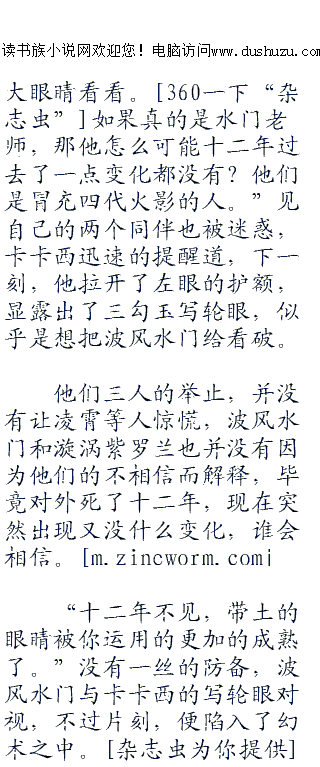 读书族小说网欢迎您！电脑访问www.dushuzu.com
大眼睛看看。[360一下“杂
志虫”]如果真的是水门老
师，那他怎么可能十二年过
去了一点变化都没有？他们
是冒充四代火影的人。”见
自己的两个同伴也被迷惑，
卡卡西迅速的提醒道，下一
刻，他拉开了左眼的护额，
显露出了三勾玉写轮眼，似
乎是想把波风水门给看破。
他们三人的举止，并没
有让凌霄等人惊慌，波风水
门和漩涡紫罗兰也并没有因
为他们的不相信而解释，毕
竟对外死了十二年，现在突
然出现又没什么变化，谁会
相信。[m.zincworm.com]
“十二年不见，带土的
眼睛被你运用的更加的成熟
了。”没有一丝的防备，波
风水门与卡卡西的写轮眼对
视，不过片刻，便陷入了幻
术之中。[杂志虫为你提供]